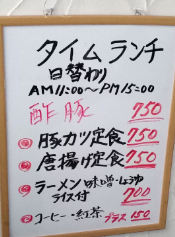 タイムランチ
日替わり
AM11:00〜PM15:00
酢豚 750
豚カツ定食 750
唐揚げ定食 750
ラーメン 味噌・しょうゆ
ライス付 700
コーヒー・紅茶 プラス150